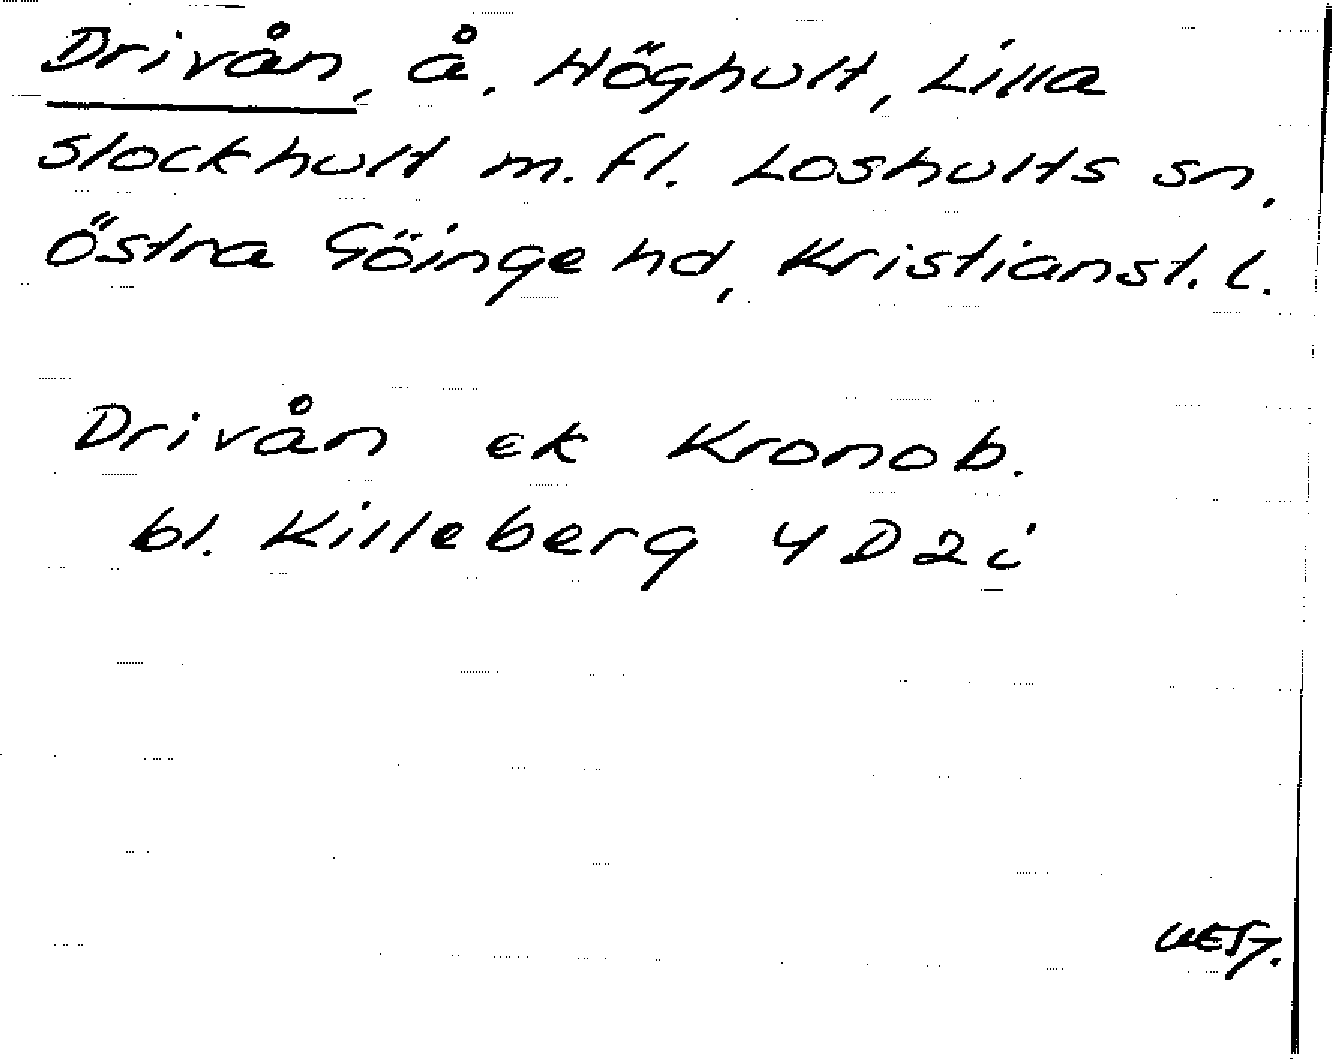 Drivån, å. Höghult, Lilla
Stockhult m.fl. Loshults sn,
Östra Göinge hd, Kristianst. l.
Drivån ek Kronob.
bl. Killeberg 4D2i